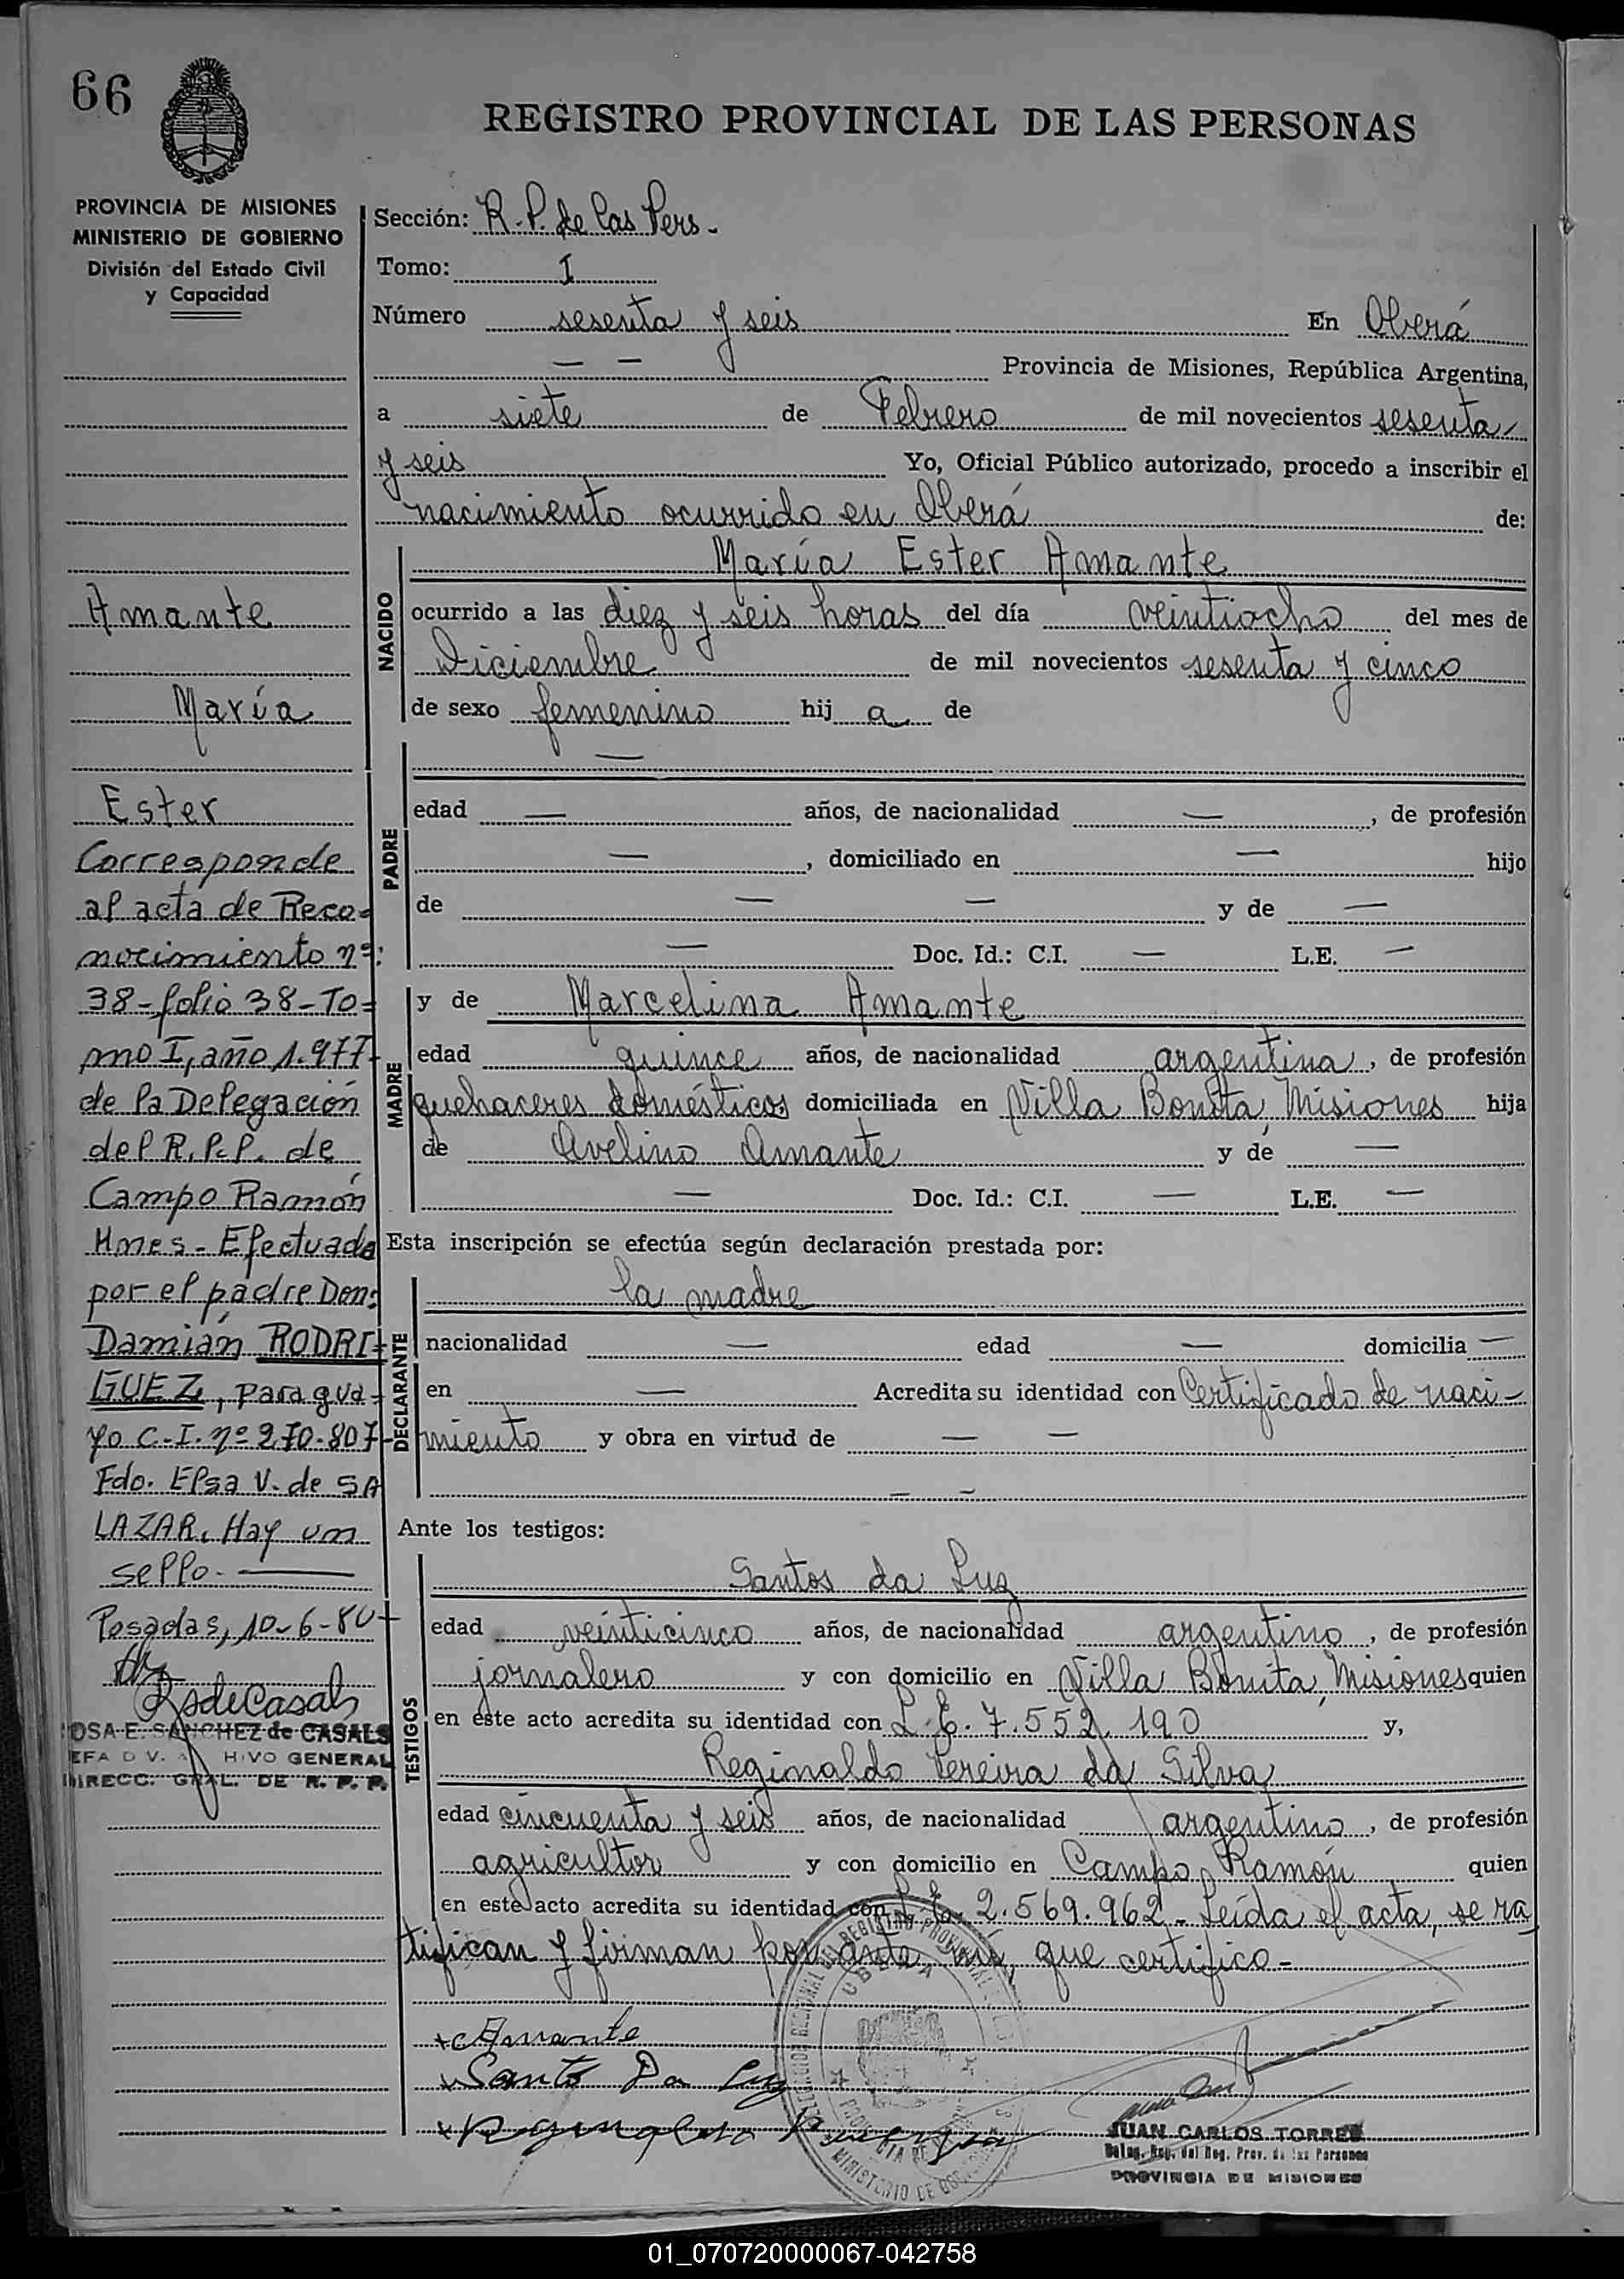 66
REGISTRO PROVINCIAL DE LAS PERSONAS
PROVINCIA DE MISIONES
MINISTERIO DE GOBIERNO
División del Estado Civil
y Capacidad
Amante
María
Ester
Corresponde
al acta de Reco=
nocimiento nº:
38-folio 38-To=
mo I, año 1.977-
de la Delegación
del R.P.P. de
Campo Ramón
Mnes-Efectuada
por el padre Don:
Damián RODRI=
GUEZ, paragua-
yo C.I. nº 270.807-
Fdo. Elsa V. de SA
LAZAR. Hay un
sello.
Posadas, 10-6-80
RSdeCasals
OSA E. SANCHEZ de CASALS
EFA DIV. ARCHIVO GENERAL
DIRECC. GRAL. DE R. P. P.
Sección: R.P. de las Pers.
Tomo: I
Número sesenta y seis En Oberá
— — Provincia de Misiones, República Argentina,
a siete de Febrero de mil novecientos sesenta
y seis Yo, Oficial Público autorizado, procedo a inscribir el
nacimiento ocurrido en Oberá de:
NACIDO
María Ester Amante
ocurrido a las diez y seis horas del día veintiocho del mes de
Diciembre de mil novecientos sesenta y cinco
de sexo femenino hij a de
PADRE
—
edad — años, de nacionalidad —, de profesión
—, domiciliado en — hijo
de — — y de —
— Doc. Id.: C.I. — L.E. —
MADRE
y de Marcelina Amante
edad quince años, de nacionalidad argentina, de profesión
quehaceres domésticos domiciliada en Villa Bonita, Misiones hija
de Avelino Amante y de —
— Doc. Id.: C.I. — L.E. —
Esta inscripción se efectúa según declaración prestada por:
DECLARANTE
la madre
nacionalidad — edad — domicilia —
en — Acredita su identidad con Certificado de naci-
miento y obra en virtud de — —
— —
Ante los testigos:
TESTIGOS
Santos da Luz
edad veinticinco años, de nacionalidad argentino, de profesión
jornalero y con domicilio en Villa Bonita, Misiones quien
en este acto acredita su identidad con L.E. 7.552.190 y,
Reginaldo Pereira da Silva
edad cincuenta y seis años, de nacionalidad argentino, de profesión
agricultor y con domicilio en Campo Ramón quien
en este acto acredita su identidad con L.E. 2.569.962. Leída el acta, se ra
tifican y firman por ante mí, que certifico-
Amante
Santo Da Luz
JUAN CARLOS TORRES
Deleg. Reg. del Reg. Prov. de las Personas
PROVINCIA DE MISIONES
01_070720000067-042758